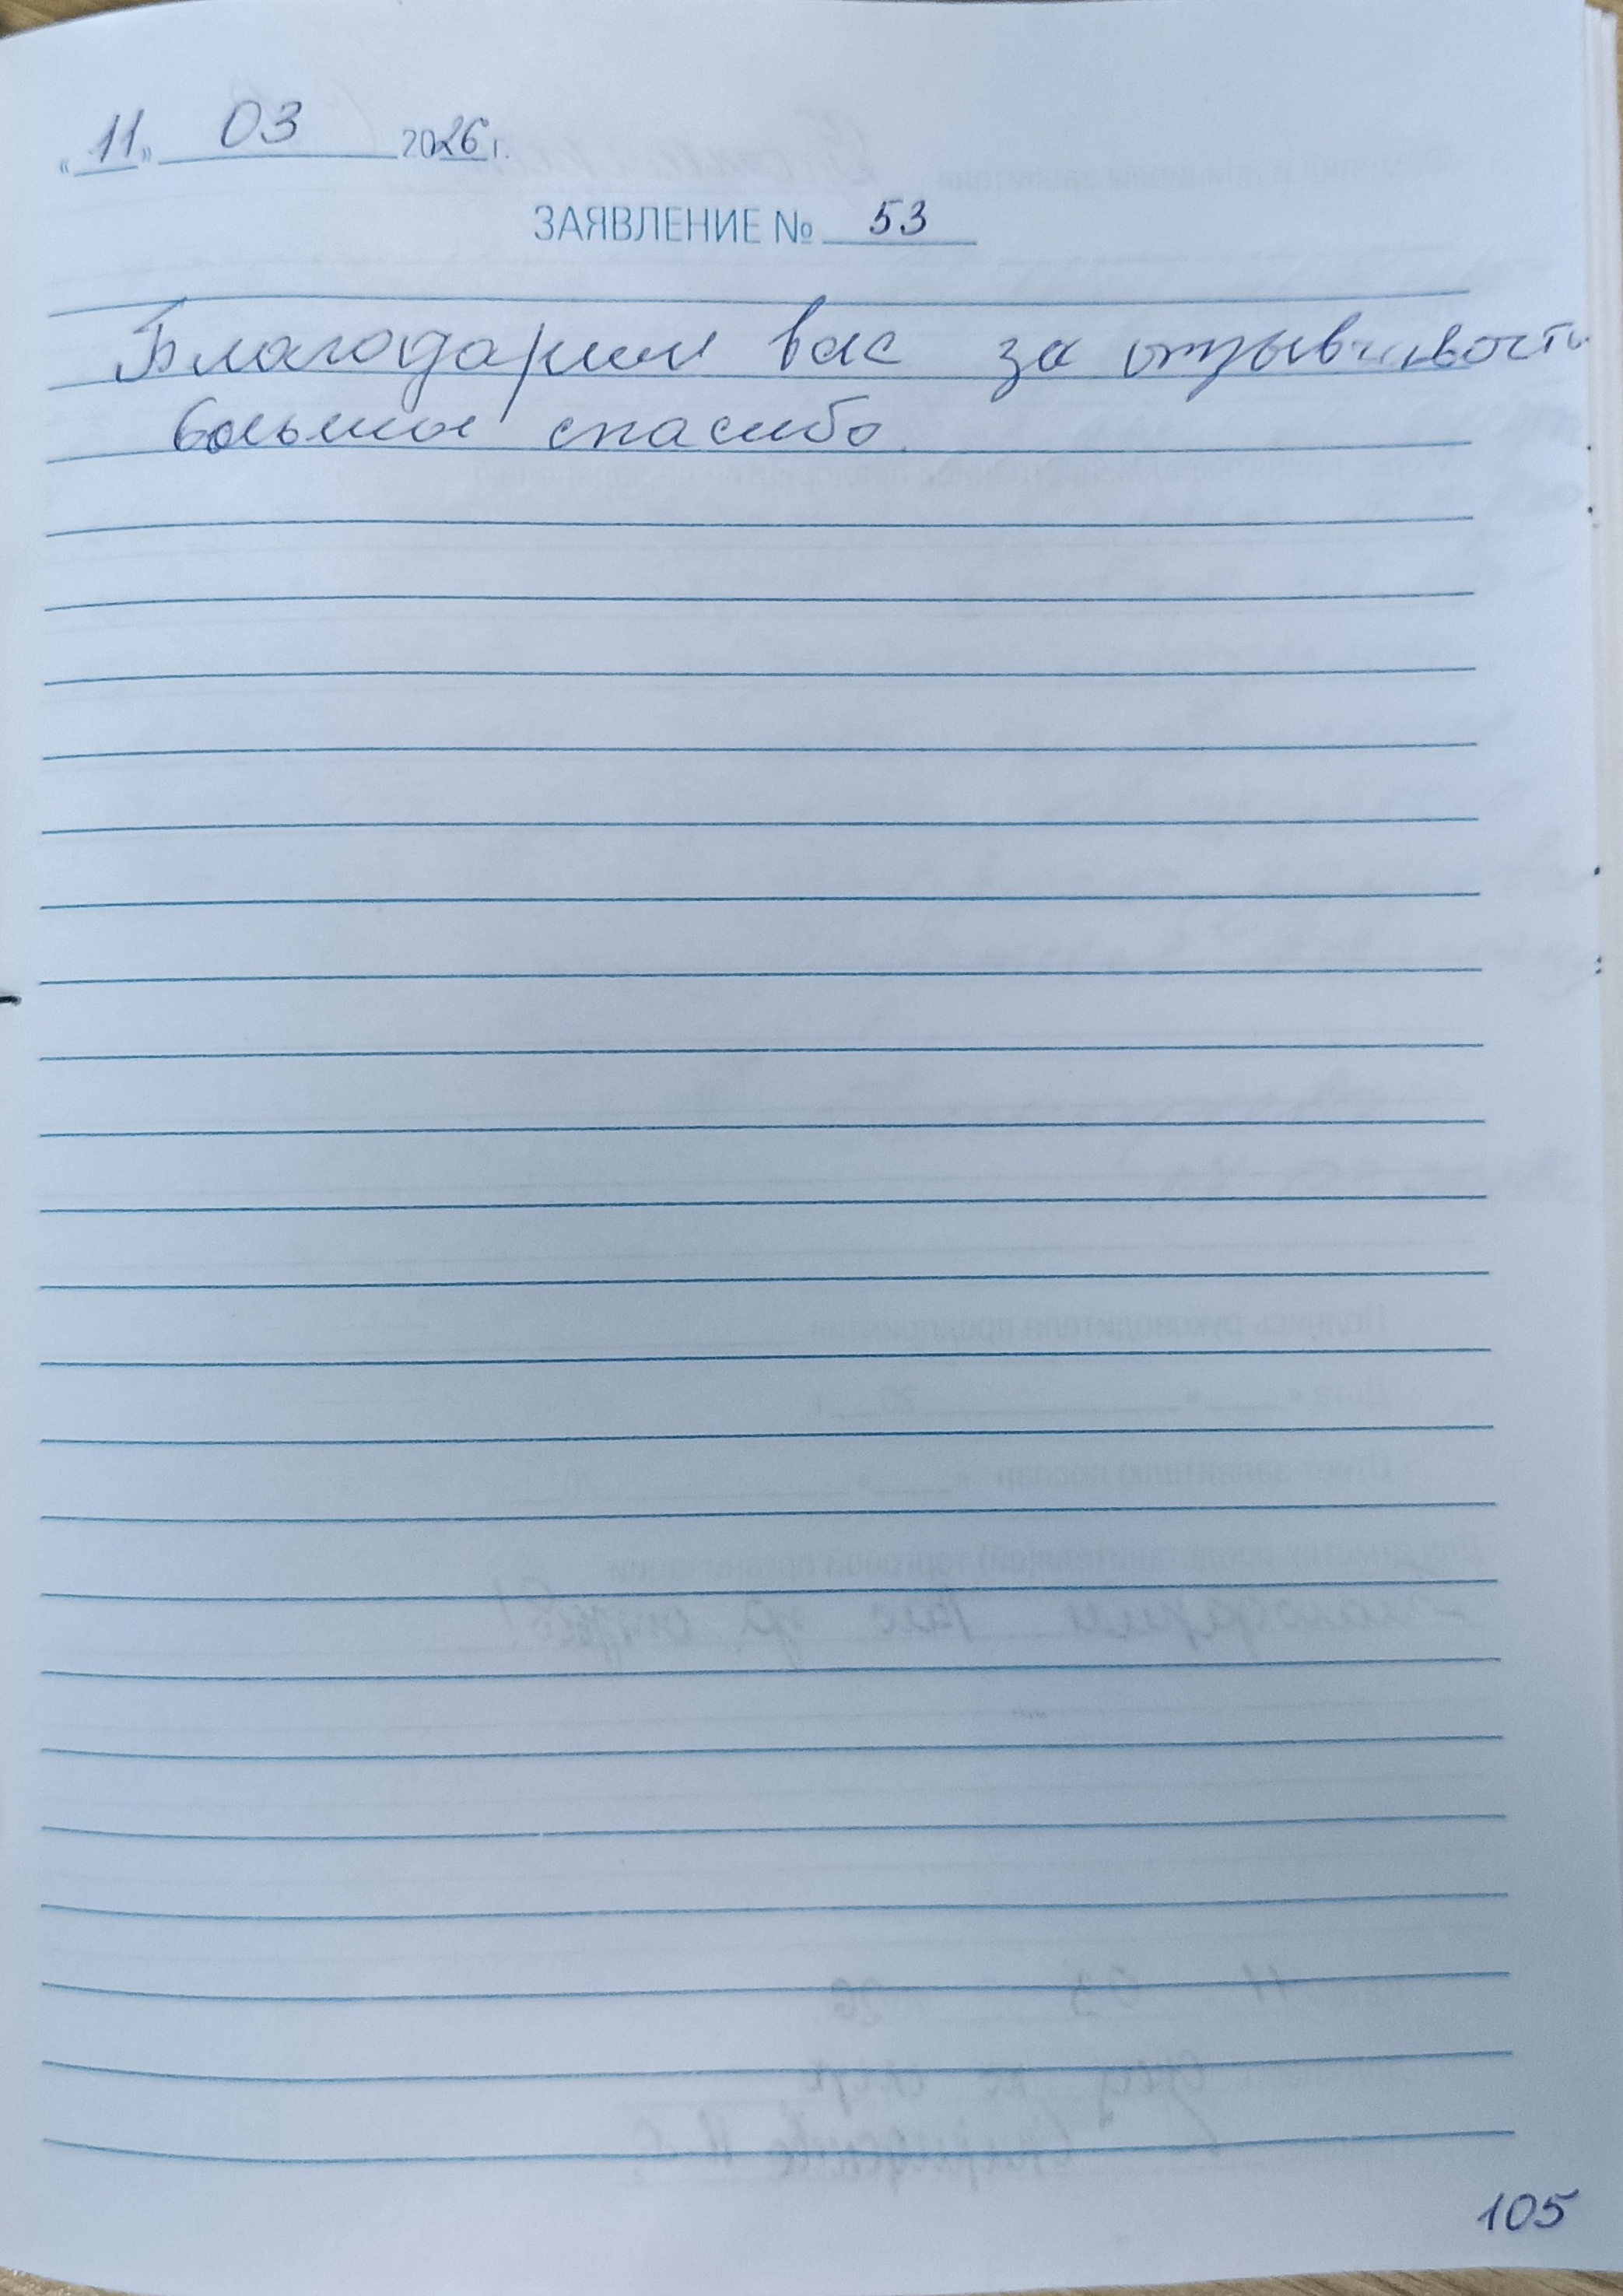 «11» 03 2026 г.
ЗАЯВЛЕНИЕ № 53
Благодарим вас за отзывчивость
большое спасибо.
105